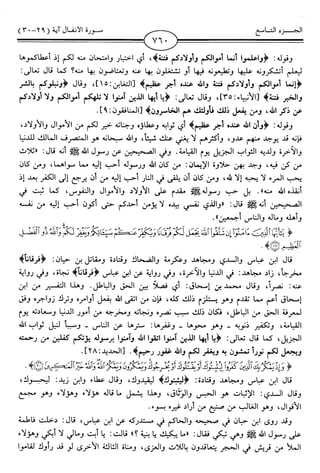 الجزء التاسع
سورة الأنفال آية (٢٩-٣٠)
٧٦٠
وقوله: ﴿واعلموا أنما أموالكم وأولادكم فتنة﴾، أي اختبار وامتحان منه لكم إذ أعطاكموها
ليعلم أتشكرونه عليها وتطيعونه فيها أو تشتغلون بها عنه وتعتاضون بها منه؟ كما قال تعالى:
﴿إنما أموالكم وأولادكم فتنة والله عنده أجر عظيم﴾ [التغابن:١٥]، وقال ﴿ونبلوكم بالشر
والخير فتنة﴾ [الأنبياء:٣٥]، وقال تعالى: ﴿يا أيها الذين آمنوا لا تلهكم أموالكم ولا أولادكم
عن ذكر الله، ومن يفعل ذلك فأولئك هم الخاسرون﴾ [المنافقون:٩].
وقوله: ﴿وأن الله عنده أجر عظيم﴾ أي ثوابه وعطاؤه وجناته خير لكم من الأموال والأولاد،
فإنه قد يوجد منهم عدو، وأكثرهم لا يغني عنك شيئاً، والله سبحانه هو المتصرف المالك للدنيا
والآخرة ولديه الثواب الجزيل يوم القيامة. وفي الصحيحين عن رسول الله ﷺ أنه قال: «ثلاث
من كن فيه، وجد بهن حلاوة الإيمان: من كان الله ورسوله أحب إليه مما سواهما، ومن كان
يحب المرء لا يحبه إلا لله، ومن كان أن يلقى في النار أحب إليه من أن يرجع إلى الكفر بعد إذ
أنقذه الله منه». بل حب رسوله ﷺ مقدم على الأولاد والأموال والنفوس، كما ثبت في
الصحيحين أنه ﷺ قال: «والذي نفسي بيده لا يؤمن أحدكم حتى أكون أحب إليه من نفسه
وأهله وماله والناس أجمعين».
﴿يا أيها الذين آمنوا إن تتقوا الله يجعل لكم فرقانا ويكفر عنكم سيئاتكم ويغفر لكم والله ذو الفضل
العظيم﴾
قال ابن عباس والسدي ومجاهد وعكرمة والضحاك وقتادة ومقاتل بن حيان: ﴿فرقاناً﴾
مخرجاً، زاد مجاهد: في الدنيا والآخرة، وفي رواية عن ابن عباس ﴿فرقاناً﴾ نجاة، وفي رواية
عنه: نصراً، وقال محمد بن إسحاق: أي فصلاً بين الحق والباطل. وهذا التفسير من ابن
إسحاق أعم مما تقدم وهو يستلزم ذلك كله، فإن من اتقى الله بفعل أوامره وترك زواجره وفق
لمعرفة الحق من الباطل، فكان ذلك سبب نصره ونجاته ومخرجه من أمور الدنيا وسعادته يوم
القيامة، وتكفير ذنوبه ـ وهو محوها ـ وغفرها: سترها عن الناس ـ وسبباً لنيل ثواب الله
الجزيل، كما قال تعالى: ﴿يا أيها الذين آمنوا اتقوا الله وآمنوا برسوله يؤتكم كفلين من رحمته
ويجعل لكم نوراً تمشون به ويغفر لكم والله غفور رحيم﴾. [الحديد:٢٨].
﴿وإذ يمكر بك الذين كفروا ليثبتوك أو يقتلوك أو يخرجوك ويمكرون ويمكر الله والله خير الماكرين﴾
قال ابن عباس ومجاهد وقتادة: ﴿ليثبتوك﴾ ليقيدوك، وقال عطاء وابن زيد: ليحبسوك،
وقال السدي: الإثبات هو الحبس والوثاق، وهذا يشمل ما قاله هؤلاء وهؤلاء، وهو مجمع
الأقوال، وهو الغالب من صنيع من أراد غيره بسوء.
وقد روى ابن حبان في صحيحه والحاكم في مستدركه عن ابن عباس، قال: دخلت فاطمة
على رسول الله ﷺ وهي تبكي فقال: «ما يبكيك يا بنية ؟» قالت: يا أبت ومالي لا أبكي وهؤلاء
الملأ من قريش في الحجر يتعاقدون باللات والعزى، ومناة الثالثة الأخرى لو قد رأوك لقاموا